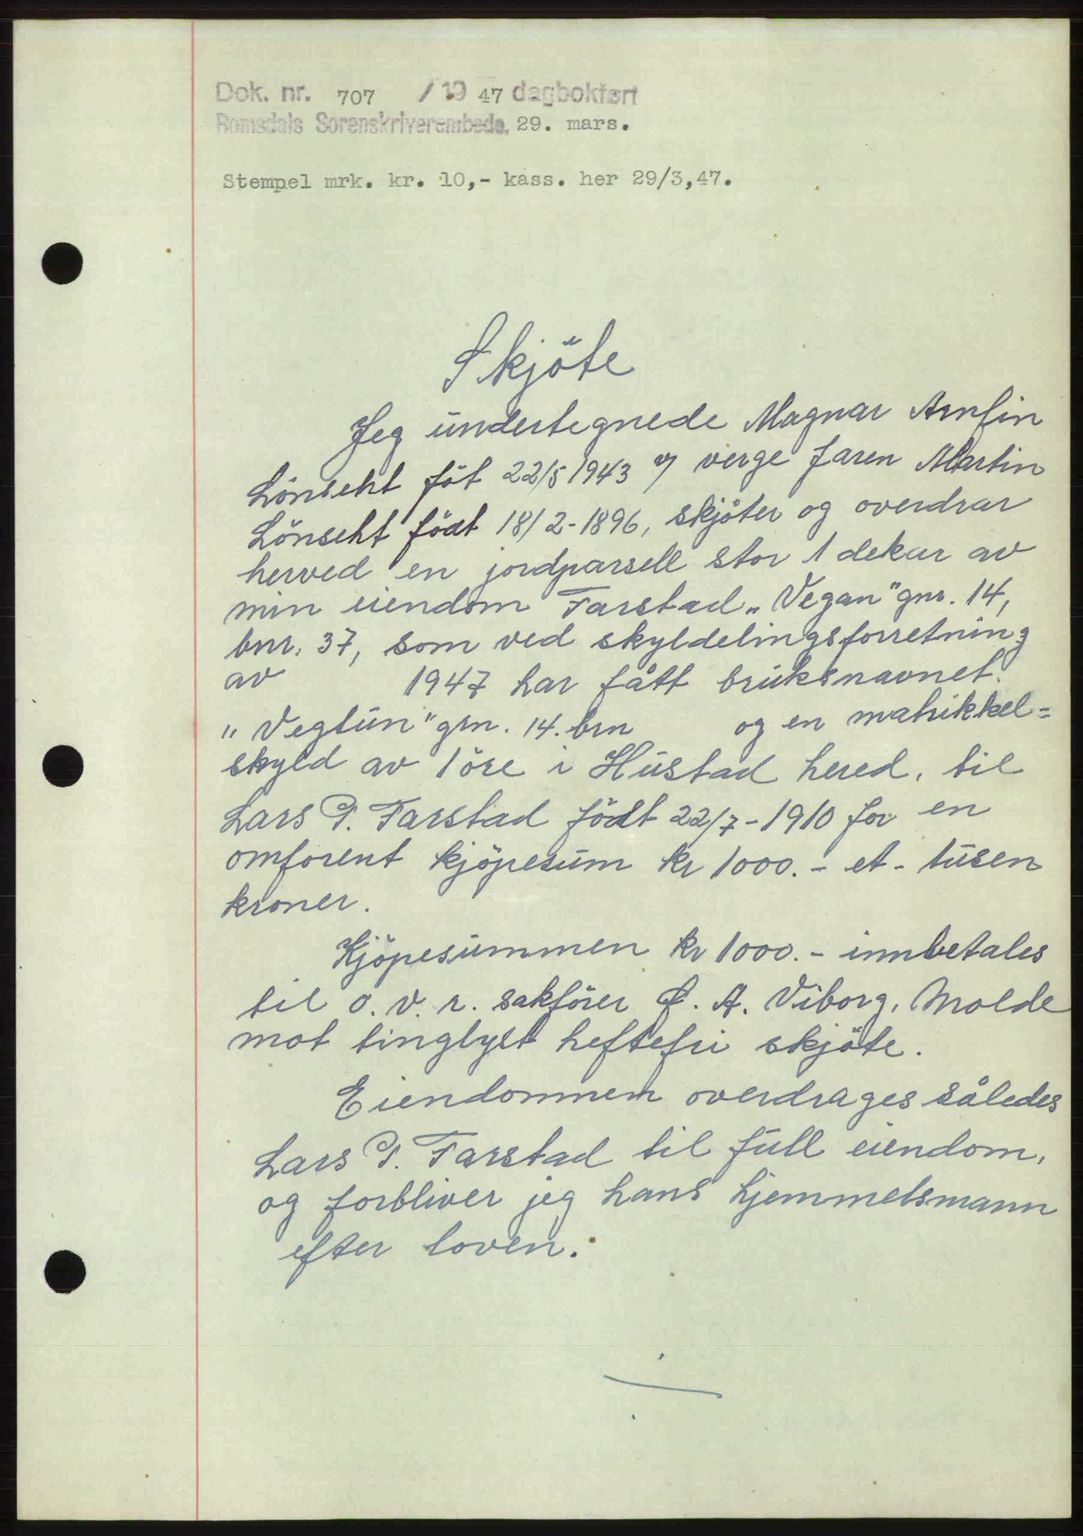 Dok. nr. 707 / 19 47 dagbokført
Romsdals Sorenskriverembede, 29. mars.
Stempel mrk. kr. 10,- kass. her 29/3,47.
Skjöte
Jeg undertegnede Magnar Arnfin
Lönseht föt 22/5 1943 v/ verge faren Martin
Lönseht födt 18/2-1896, skjöter og overdrar
herved en jordparsell stor 1 dekar av
min eiendom Farstad „Vegan" gnr. 14,
bnr. 37, som ved skyldelingsforretning
av 1947 har fått bruksnavnet.
„Vegtun" grn. 14. brn og en matrikkel=
skyld av 1 öre i Hustad hered, til
Lars P. Farstad födt 22/7-1910 for en
omforent kjöpesum kr 1000.- et- tusen
kroner.
Kjöpesummen kr 1000.- innbetales
til o. v. r. sakförer O. A. Viborg, Molde
mot tinglyst heftefri skjöte.
Eiendommen overdrages således
Lars P. Farstad til full eiendom,
og forbliver jeg hans hjemmelsmann
efter loven.